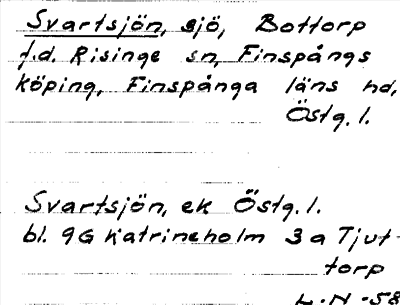 Svartsjön, sjö, Bottorp
f.d. Risinge sn, Finspångs
köping, Finspånga läns hd,
Östg. l.
Svartsjön, ek Östg. l.
bl. 9G Katrineholm 3 a Tjut-
torp
L.N -58